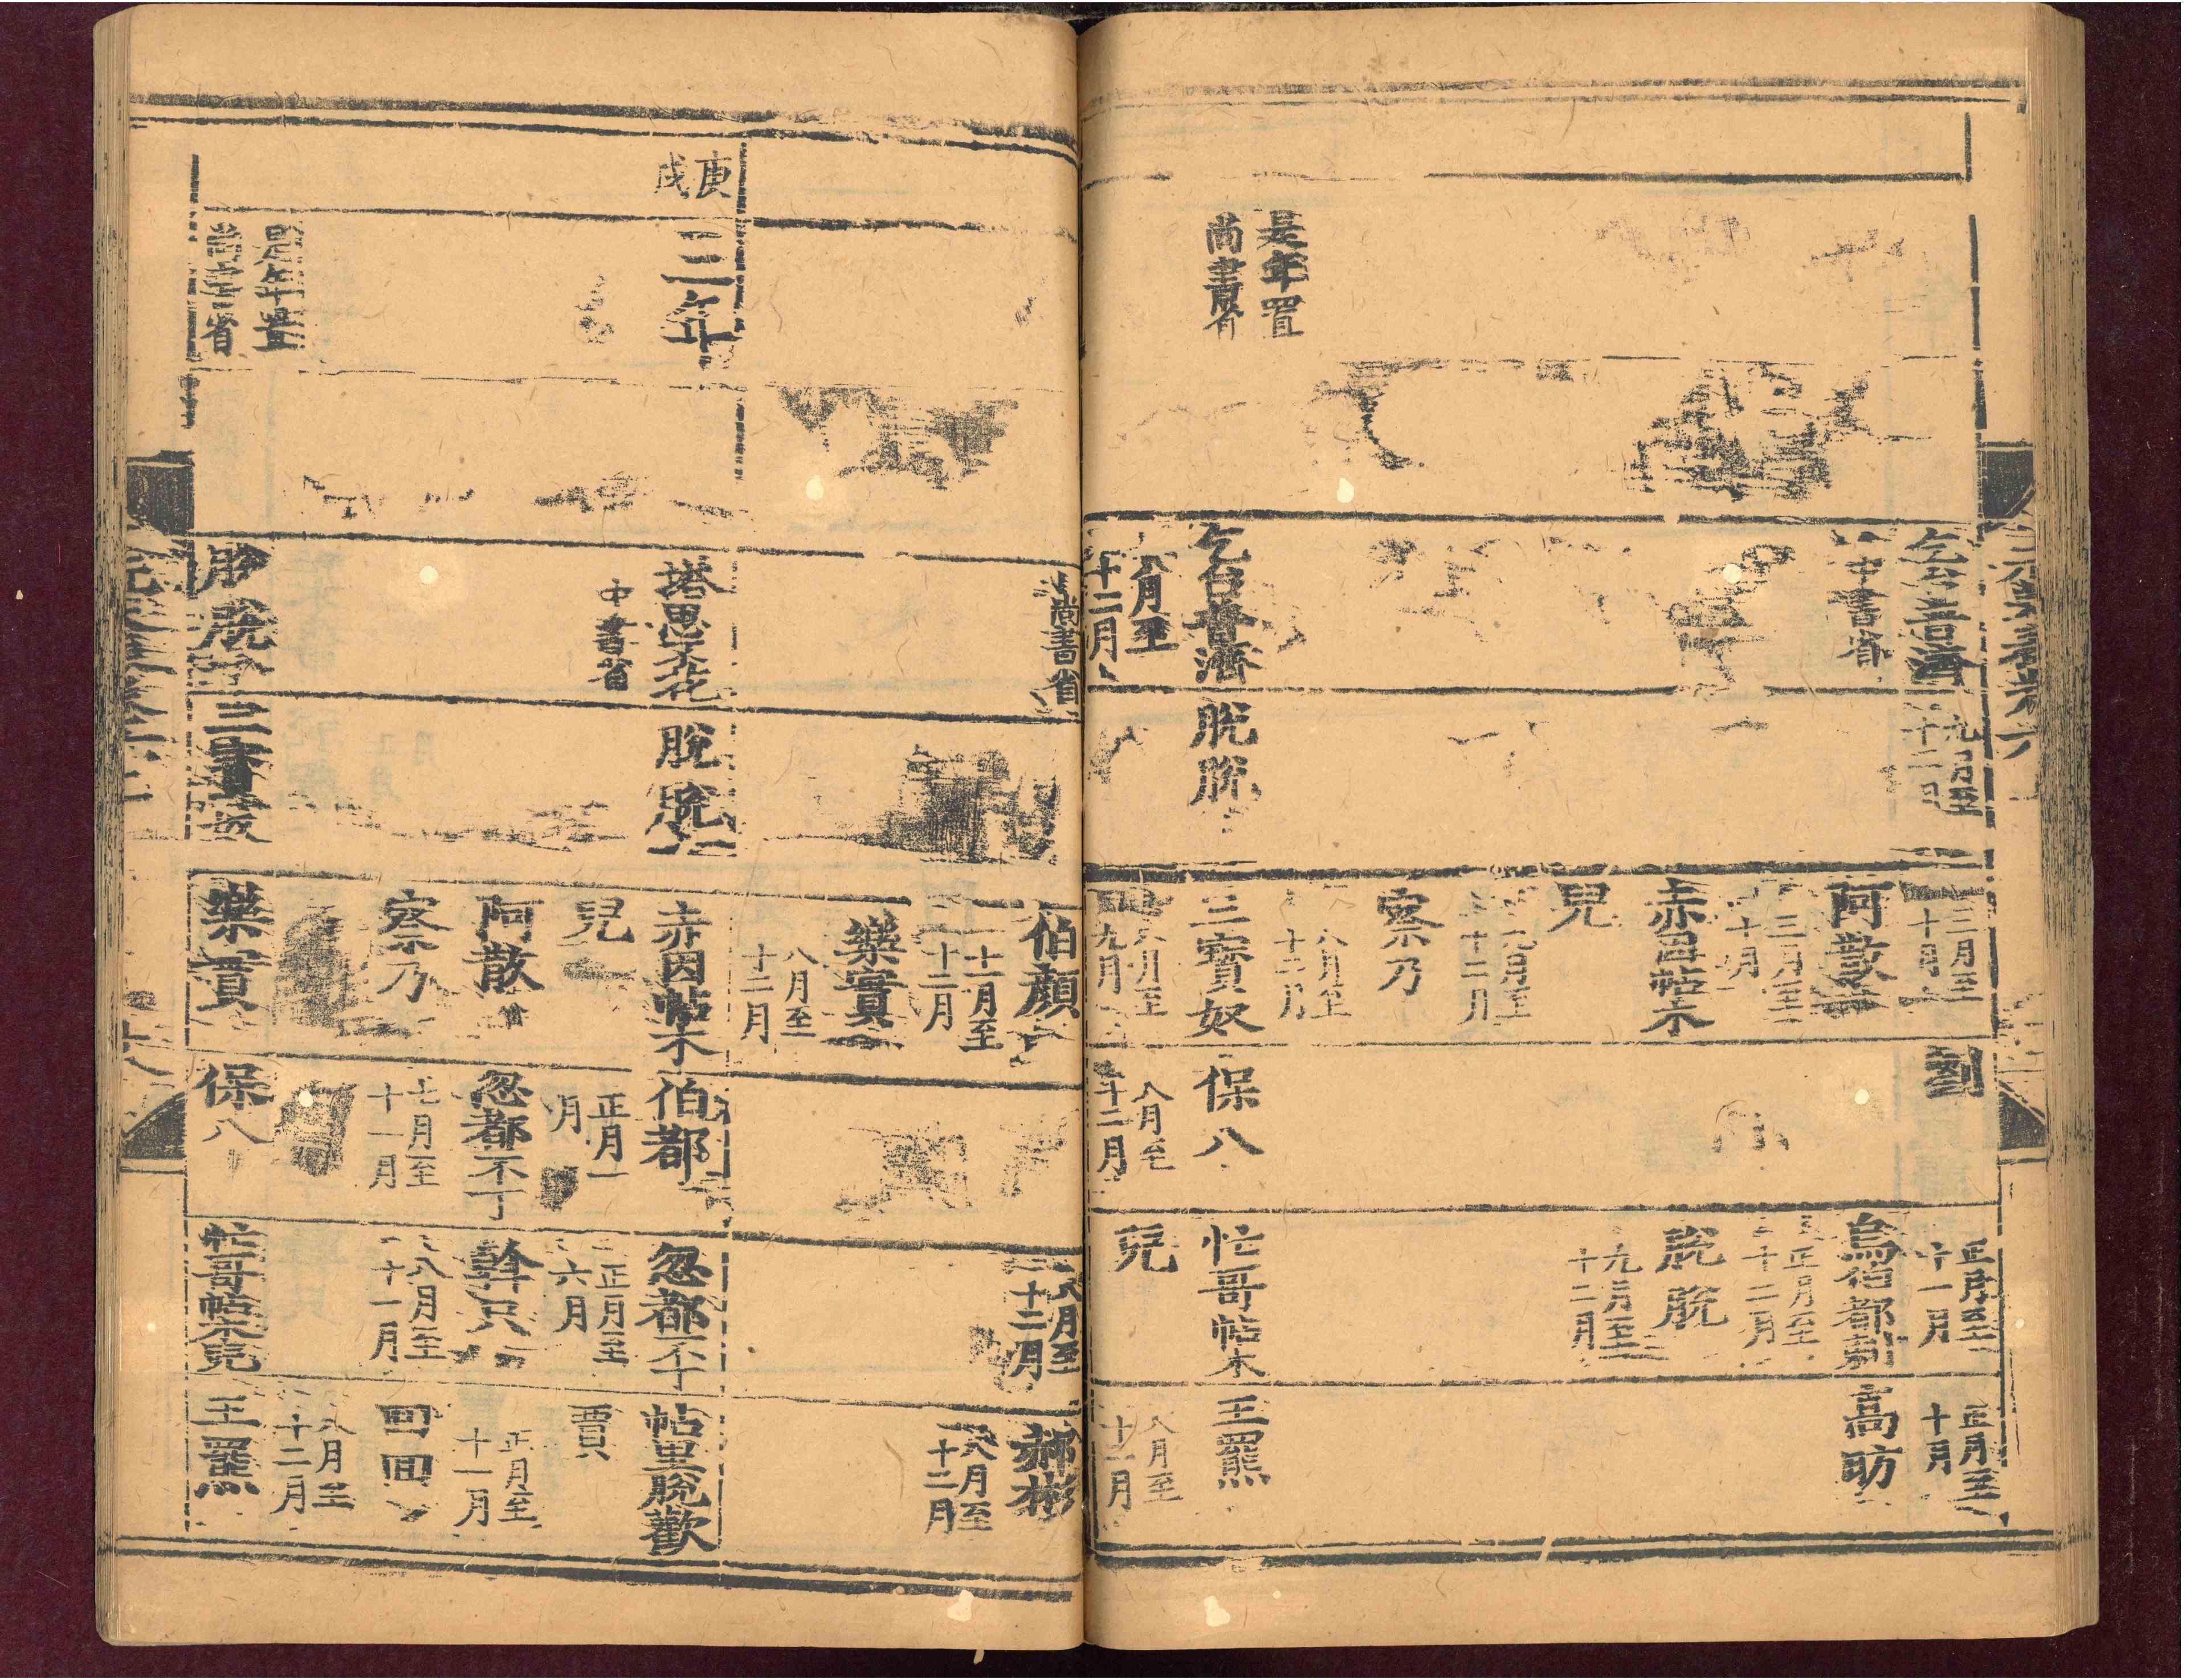 三月至
十月
劉
正月至
十一月
正月至
十月
中書省
阿散
烏伯都剌
高昉
三月至
十月
正月至
十二月
赤因帖木
兒
脫脫
九月至
十二月
九月至
十二月
察乃
八月至
十二月
是年置
尚書省
乞台普濟
八月至
十二月
脫脫
三寶奴
八月至
九月
保八
八月至
十二月
忙哥帖木
兒
王羆
八月至
十二月
尚書省
伯顏
十一月至
十二月
樂實
八月至
十二月
八月至
十二月
郝彬
八月至
十二月
庚戌
三年
塔思不花
中書省
脫脫
赤因帖木
兒
阿散
察乃
伯都
正月
月
忽都不丁
七月至
十一月
忽都不丁
正月至
六月
斡只
八月至
十一月
帖里脫歡
賈
正月至
十一月
回回
八月至
十二月
是年置
尚書省
脫脫
三寶奴
樂實
保八
忙哥帖木兒
王羆